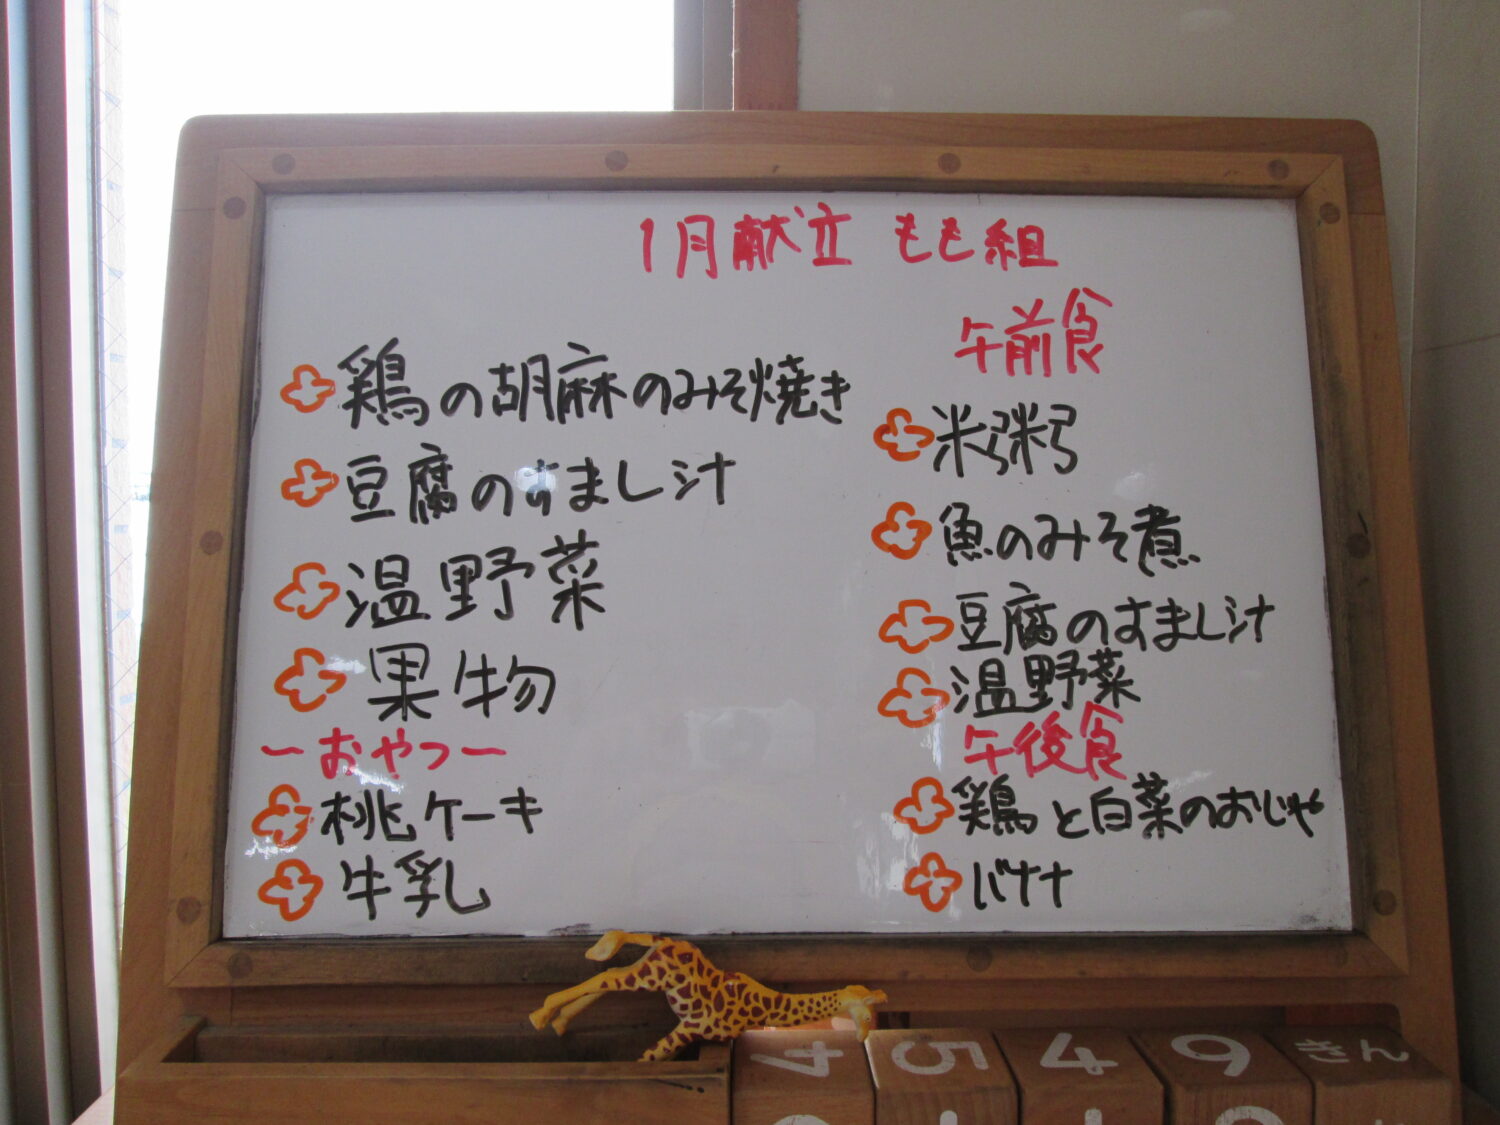 1月献立 もも組
鶏の胡麻のみそ焼き
豆腐のすまし汁
温野菜
果物
ーおやつー
桃ケーキ
牛乳
午前食
米粥
魚のみそ煮
豆腐のすまし汁
温野菜
午後食
鶏と白菜のおじや
バナナ
4 5 4 9 きん